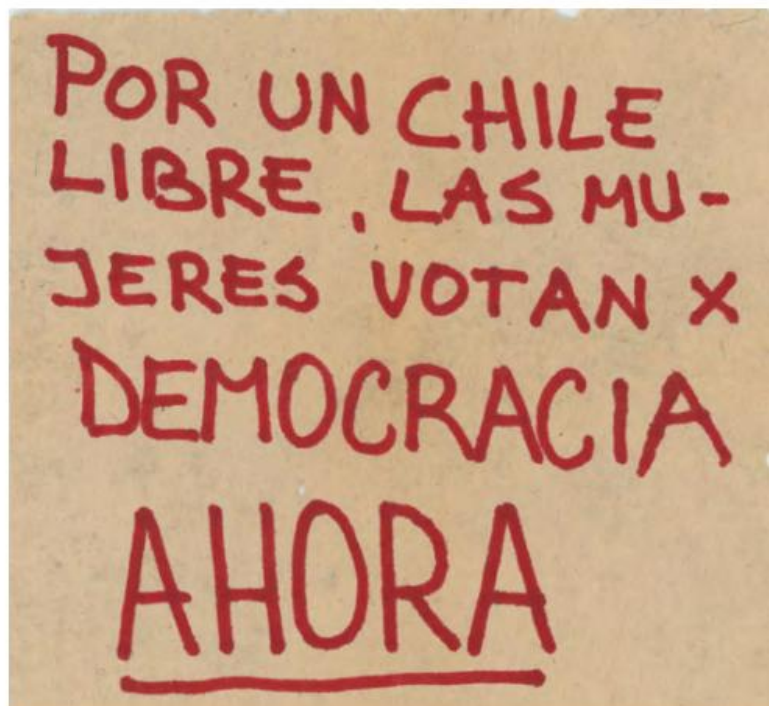 POR UN CHILE
LIBRE, LAS MU-
JERES VOTAN X
DEMOCRACIA
AHORA